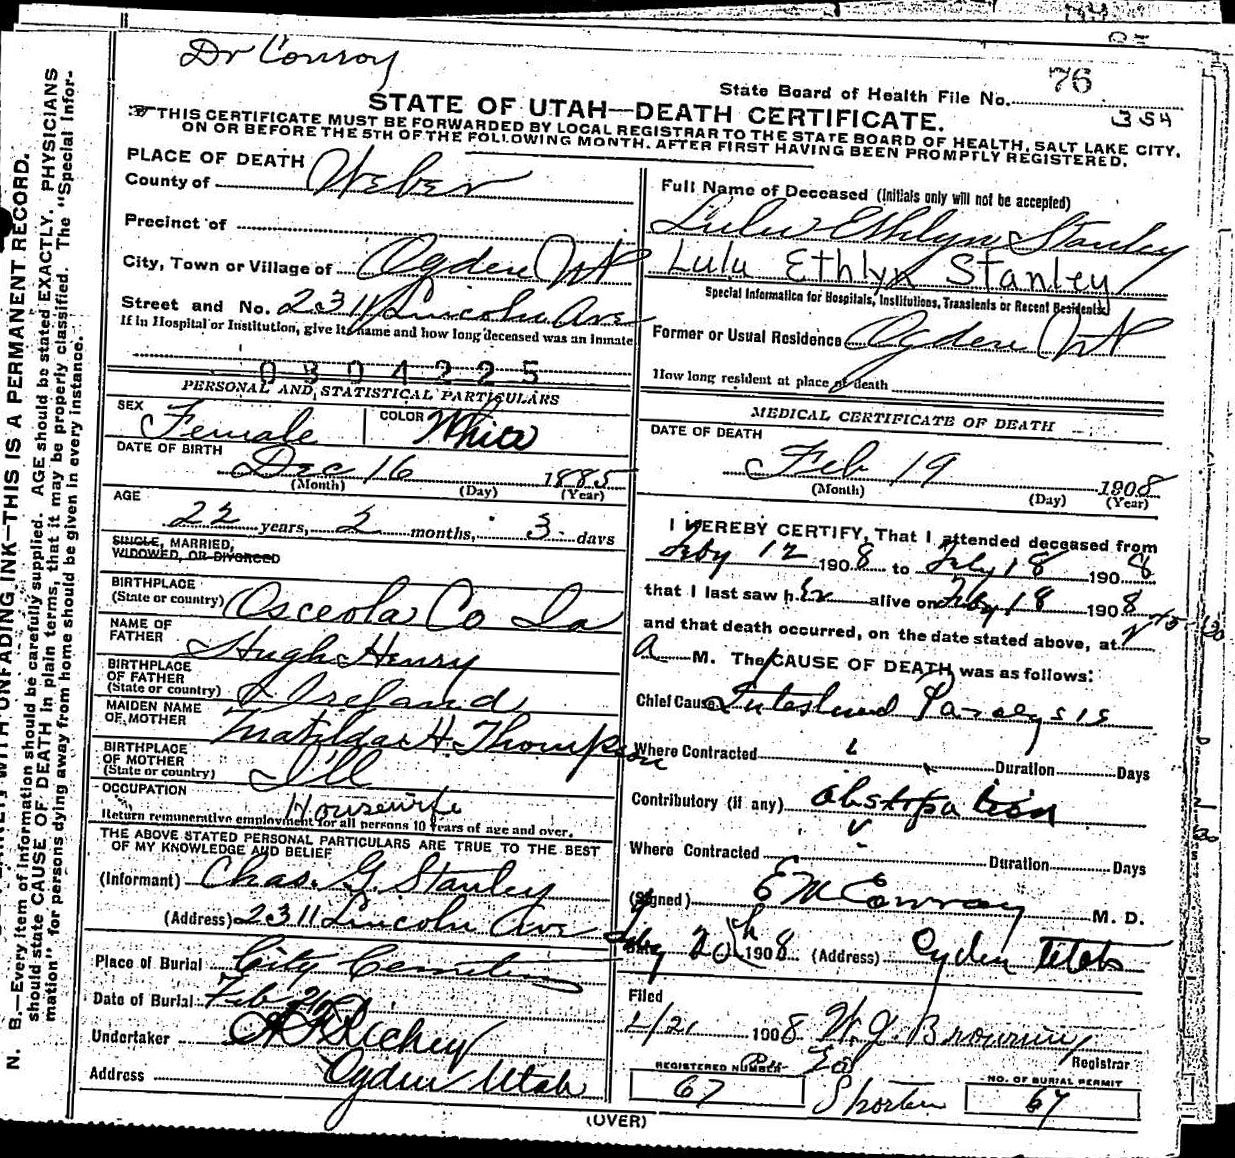 Dr Conroy
State Board of Health File No. 76
354
STATE OF UTAH—DEATH CERTIFICATE.
THIS CERTIFICATE MUST BE FORWARDED BY LOCAL REGISTRAR TO THE STATE BOARD OF HEALTH, SALT LAKE CITY,
ON OR BEFORE THE 5TH OF THE FOLLOWING MONTH, AFTER FIRST HAVING BEEN PROMPTLY REGISTERED.
N. B.—Every item of information should be carefully supplied. AGE should be stated EXACTLY. PHYSICIANS
should state CAUSE OF DEATH in plain terms, that it may be properly classified. The "Special Infor-
mation" for persons dying away from home should be given in every instance.
WITH UNFADING INK—THIS IS A PERMANENT RECORD.
PLACE OF DEATH
County of Weber
Precinct of
City, Town or Village of Ogden Ut
Street and No. 2311 Lincoln Ave
If in Hospital or Institution, give its name and how long deceased was an Inmate
0304225
PERSONAL AND STATISTICAL PARTICULARS
SEX Female COLOR White
DATE OF BIRTH Dec 16 1885
(Month) (Day) (Year)
AGE 22 years, 2 months, 3 days
SINGLE, MARRIED,
WIDOWED, OR DIVORCED
BIRTHPLACE
(State or country) Osceola Co Ia
NAME OF
FATHER Hugh Henry
BIRTHPLACE
OF FATHER
(State or country) Ireland
MAIDEN NAME
OF MOTHER Matilda H. Thompson
BIRTHPLACE
OF MOTHER
(State or country) Ill
OCCUPATION Housewife
Return remunerative employment for all persons 10 years of age and over.
THE ABOVE STATED PERSONAL PARTICULARS ARE TRUE TO THE BEST
OF MY KNOWLEDGE AND BELIEF
(Informant) Chas. G. Stanley
(Address) 2311 Lincoln Ave
Place of Burial City Cemetery
Date of Burial Feb 21
Undertaker Richey
Address Ogden Utah
Full Name of Deceased (Initials only will not be accepted)
Lulu Ethlyn Stanley
Lulu Ethlyn Stanley
Special Information for Hospitals, Institutions, Transients or Recent Residents.
Former or Usual Residence Ogden Ut
How long resident at place of death
MEDICAL CERTIFICATE OF DEATH
DATE OF DEATH
Feb 19 1908
(Month) (Day) (Year)
I HEREBY CERTIFY, That I attended deceased from
Feby 12 1908 to Feby 18 1908
that I last saw her alive on Feby 18 1908
and that death occurred, on the date stated above, at 2 15
A M. The CAUSE OF DEATH was as follows:
Chief Cause Intestinal Paralysis
Where Contracted Duration Days
Contributory (if any) obstipation
Where Contracted Duration Days
(Signed) E M Conroy M. D.
Feby 20th 1908 (Address) Ogden Utah
Filed
2/21 1908 W. J. Browning
Registrar
REGISTERED NUMBER
67
Shorten
NO. OF BURIAL PERMIT
67
(OVER)